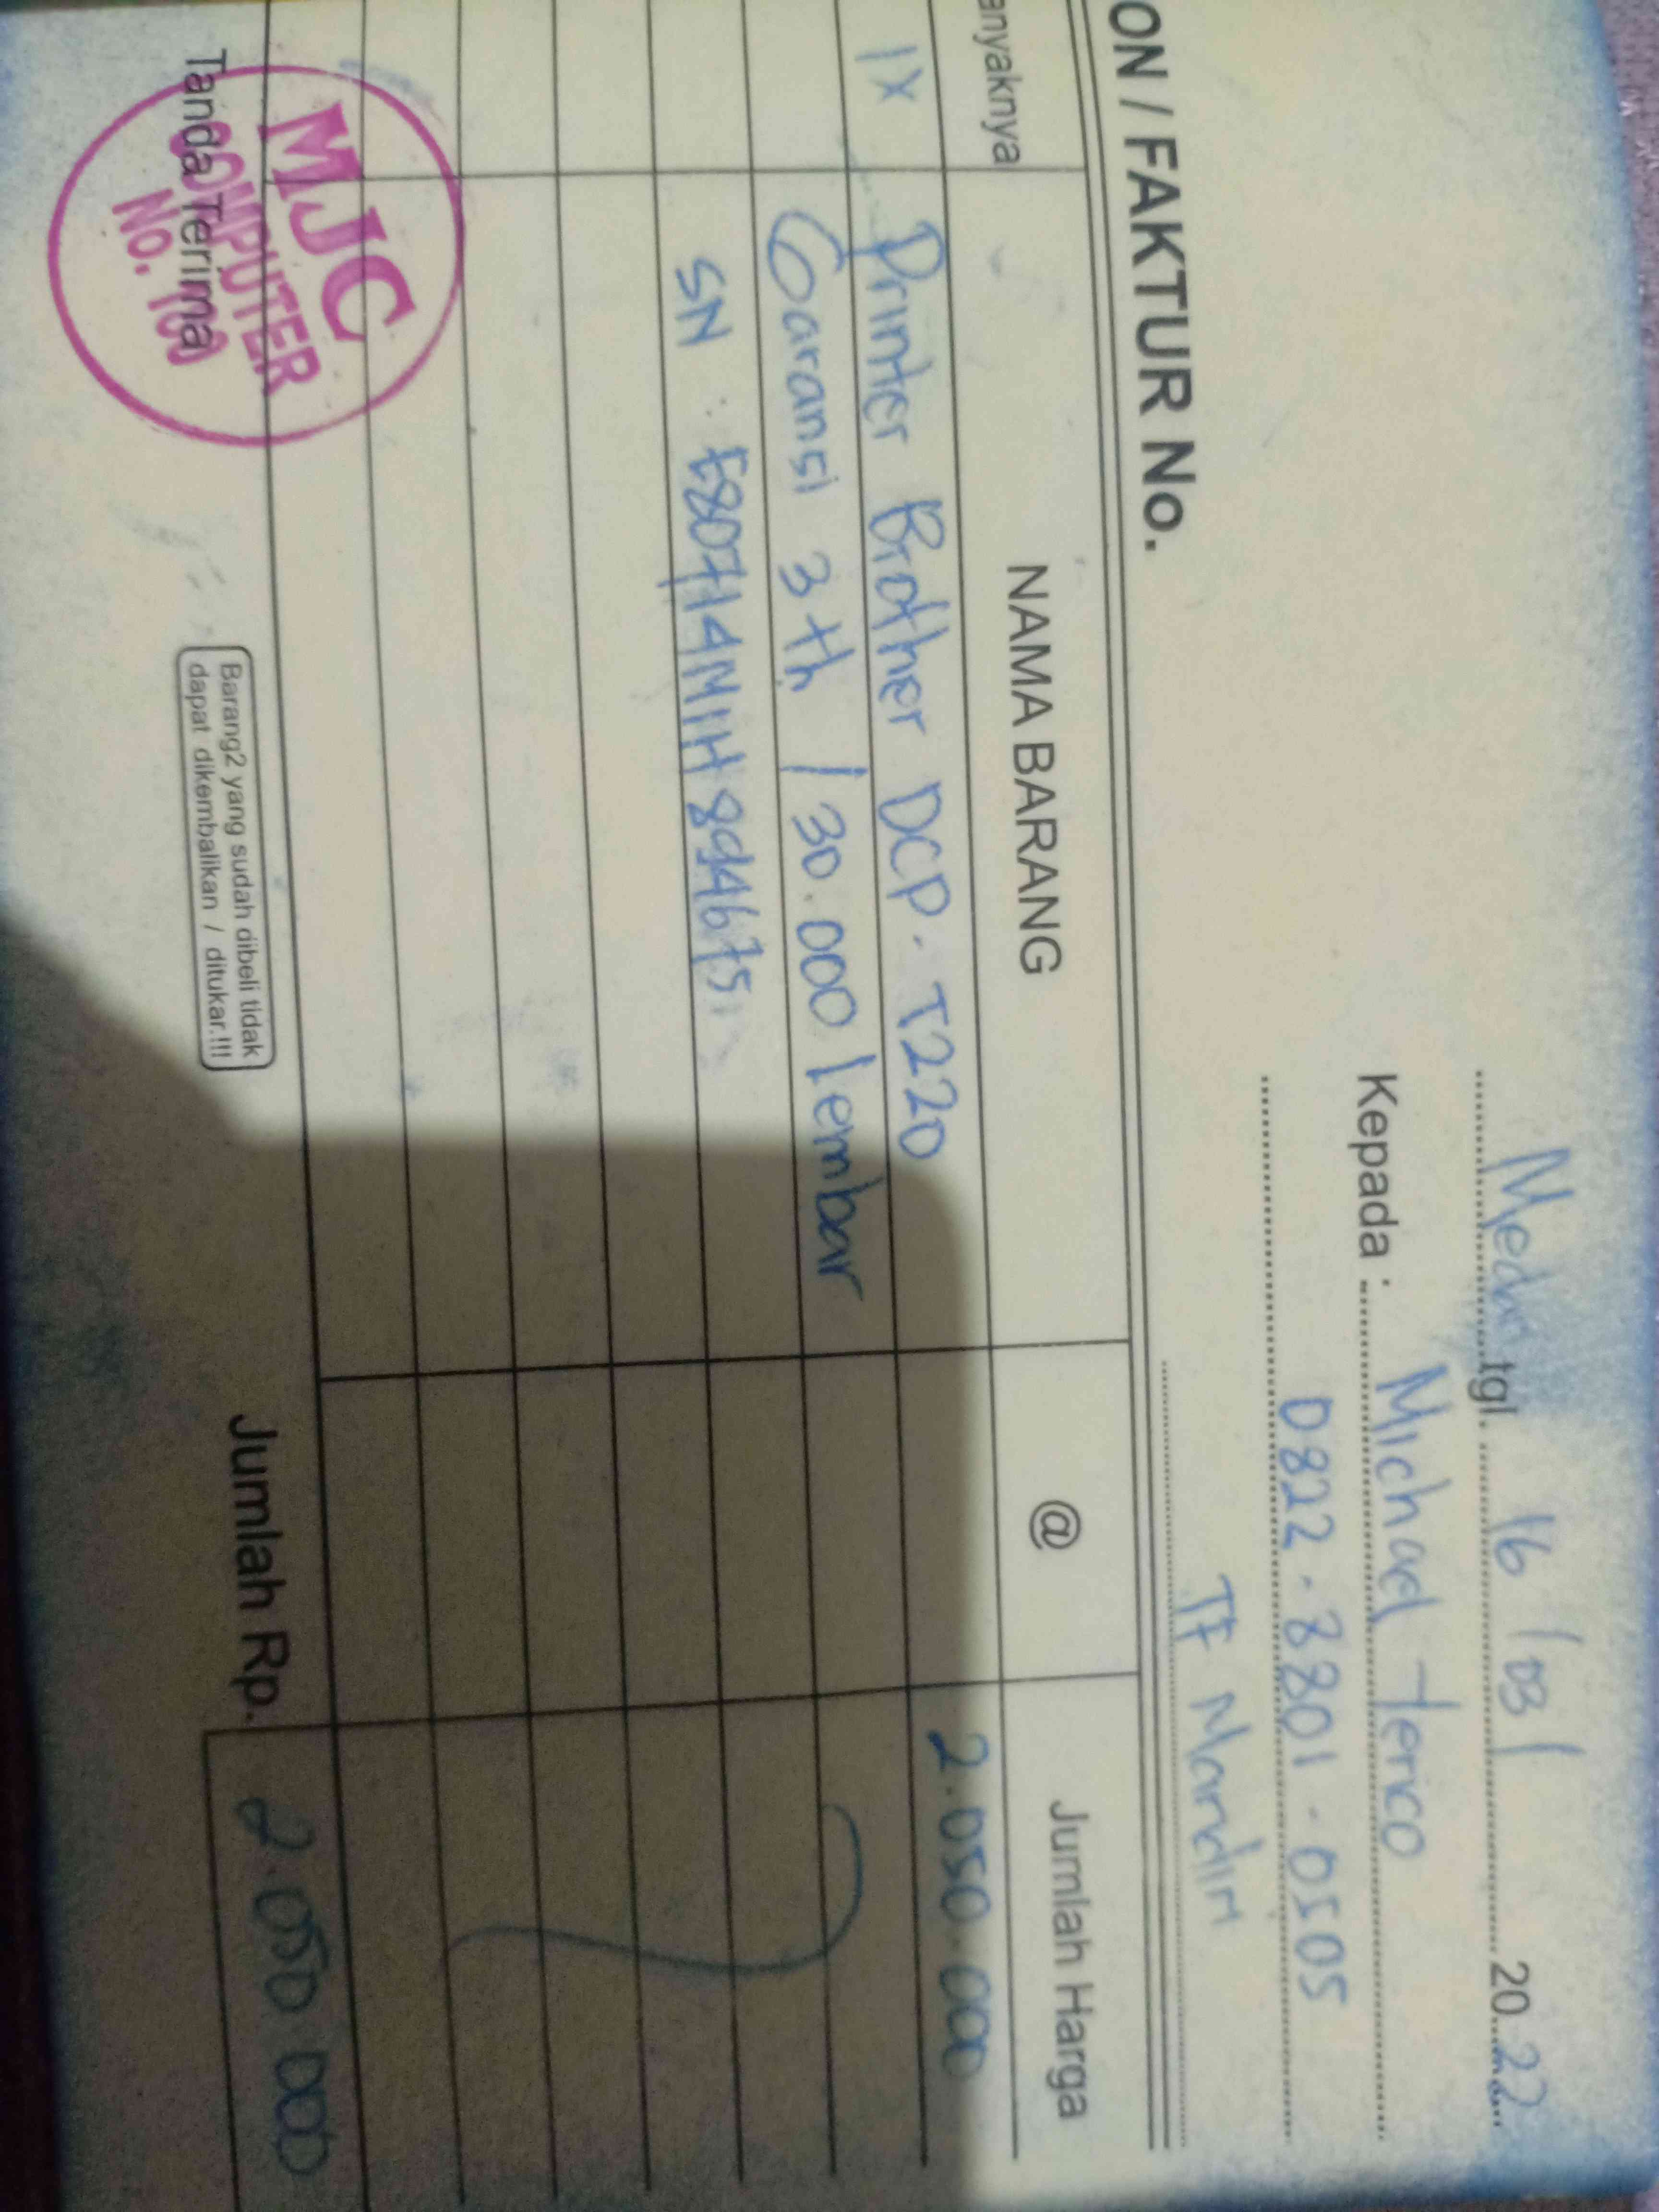 Medan tgl. 16 / 03 / 2022
Kepada : Michael Terico
0822 - 8801 - 0505
TF Mandiri
ON / FAKTUR No.
anyaknya NAMA BARANG @ Jumlah Harga
1X Printer Brother DCP - T220 2.050.000
Garansi 3 th / 30.000 lembar
SN : E80714M1H894675
MJC
COMPUTER
NO. 100
Tanda Terima
Barang2 yang sudah dibeli tidak
dapat dikembalikan / ditukar.!!!
Jumlah Rp. 2.050 000